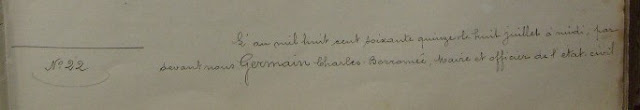 L'an mil huit cent soixante quinze le huit juillet à midi, par
Nº 22
devant nous Germain Charles-Borromée, Maire et officier de l'etat-civil